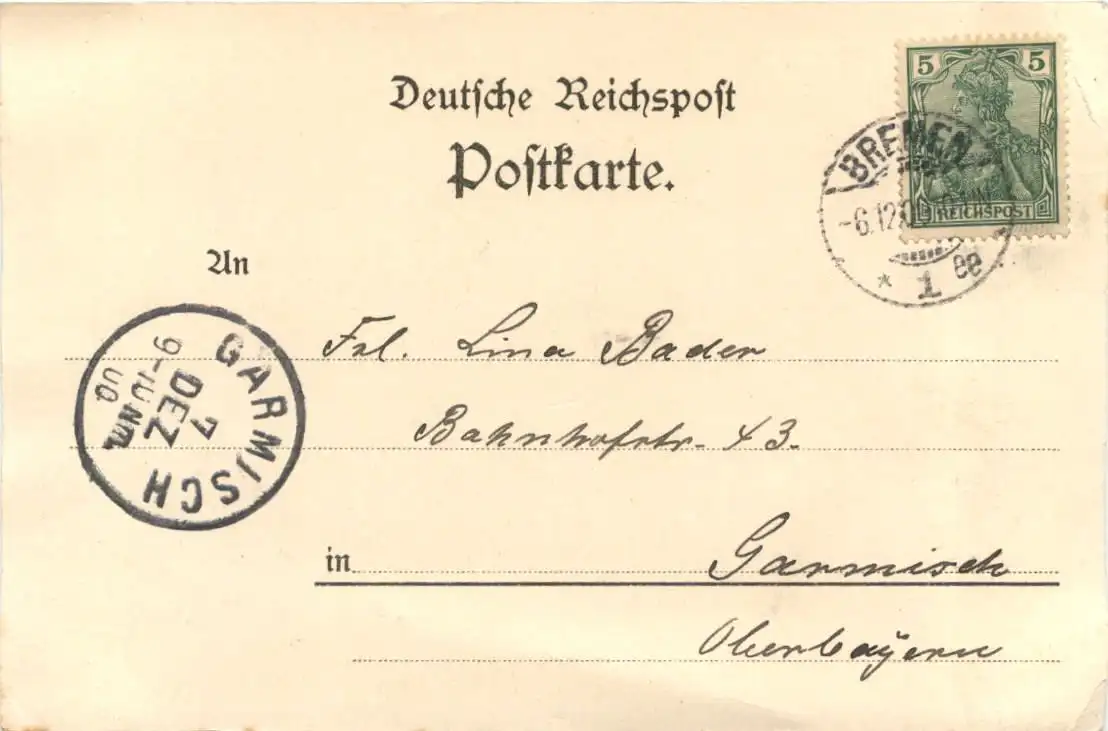 Deutsche Reichspost
Postkarte.
5 5
REICHSPOST
BREMEN
-6.12.
* 1 ee
An
Frl. Lina Bader
Bahnhofstr. 43.
in Garmisch
Oberbayern
GARMISCH
7
DEZ
9-10 Nm.
00